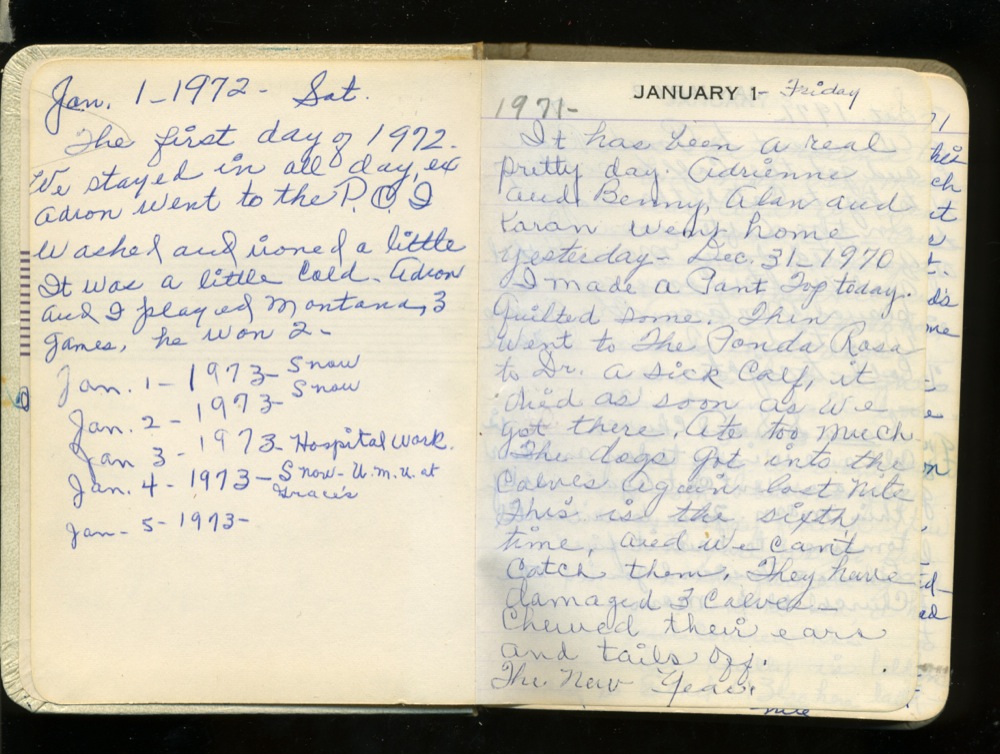 Jan. 1-1972- Sat.
The first day of 1972.
We stayed in all day, ex
Adron went to the P.O. I
washed and ironed a little
It was a little cold- Adron
and I played Montana, 3
games, he won 2-
Jan. 1- 1973- Snow
Jan. 2- 1973- Snow
Jan 3- 1973- Hospital Work.
Jan. 4- 1973- Snow- W.M.U. at
Grace's
Jan- 5-1973-
1971-
JANUARY 1- Friday
It has been a real
pretty day. Adrienne
and Benny, Alan and
Karan went home
yesterday- Dec. 31-1970
I made a Pant Top today.
Quilted some. Then
went to The Ponda Rosa
to Dr. a sick Calf, it
died as soon as we
got there. Ate too much
The dogs got into the
Calves again last nite
This is the sixth
time, and we can't
catch them. They have
damaged 3 Calves-
Chewed their ears
and tails off.
The New Year.
nite